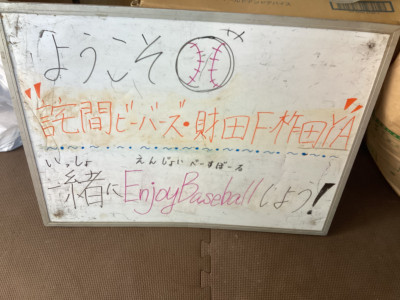 ようこそ
"詫間ビーバーズ・財田F杵田YA"
いっしょ えんじょい べーすぼーる
一緒にEnjoyBaseballしよう!